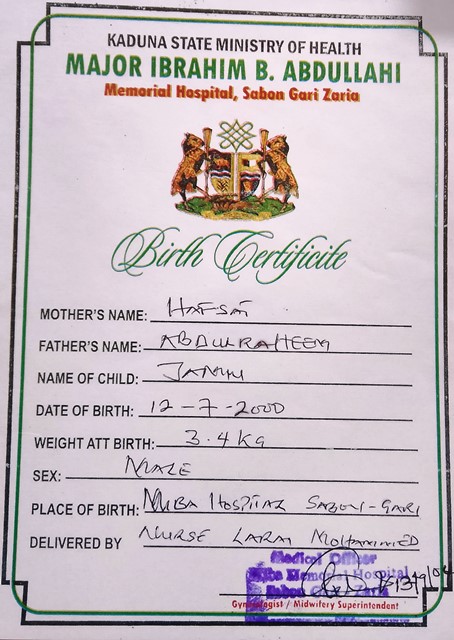 KADUNA STATE MINISTRY OF HEALTH
MAJOR IBRAHIM B. ABDULLAHI
Memorial Hospital, Sabon Gari Zaria
Birth Certificite
MOTHER'S NAME: HAFSAT
FATHER'S NAME: ABDULRAHEEM
NAME OF CHILD:
DATE OF BIRTH: 12-7-2000
WEIGHT ATT BIRTH: 3.4KG
SEX: MALE
PLACE OF BIRTH: MIBA HOSPITAL SABON-GARI
DELIVERED BY NURSE LARAI MOHAMMED
Medical Officer
Memorial Hospital
Sabon Gari Zaria
Gynecologist / Midwifery Superintendent